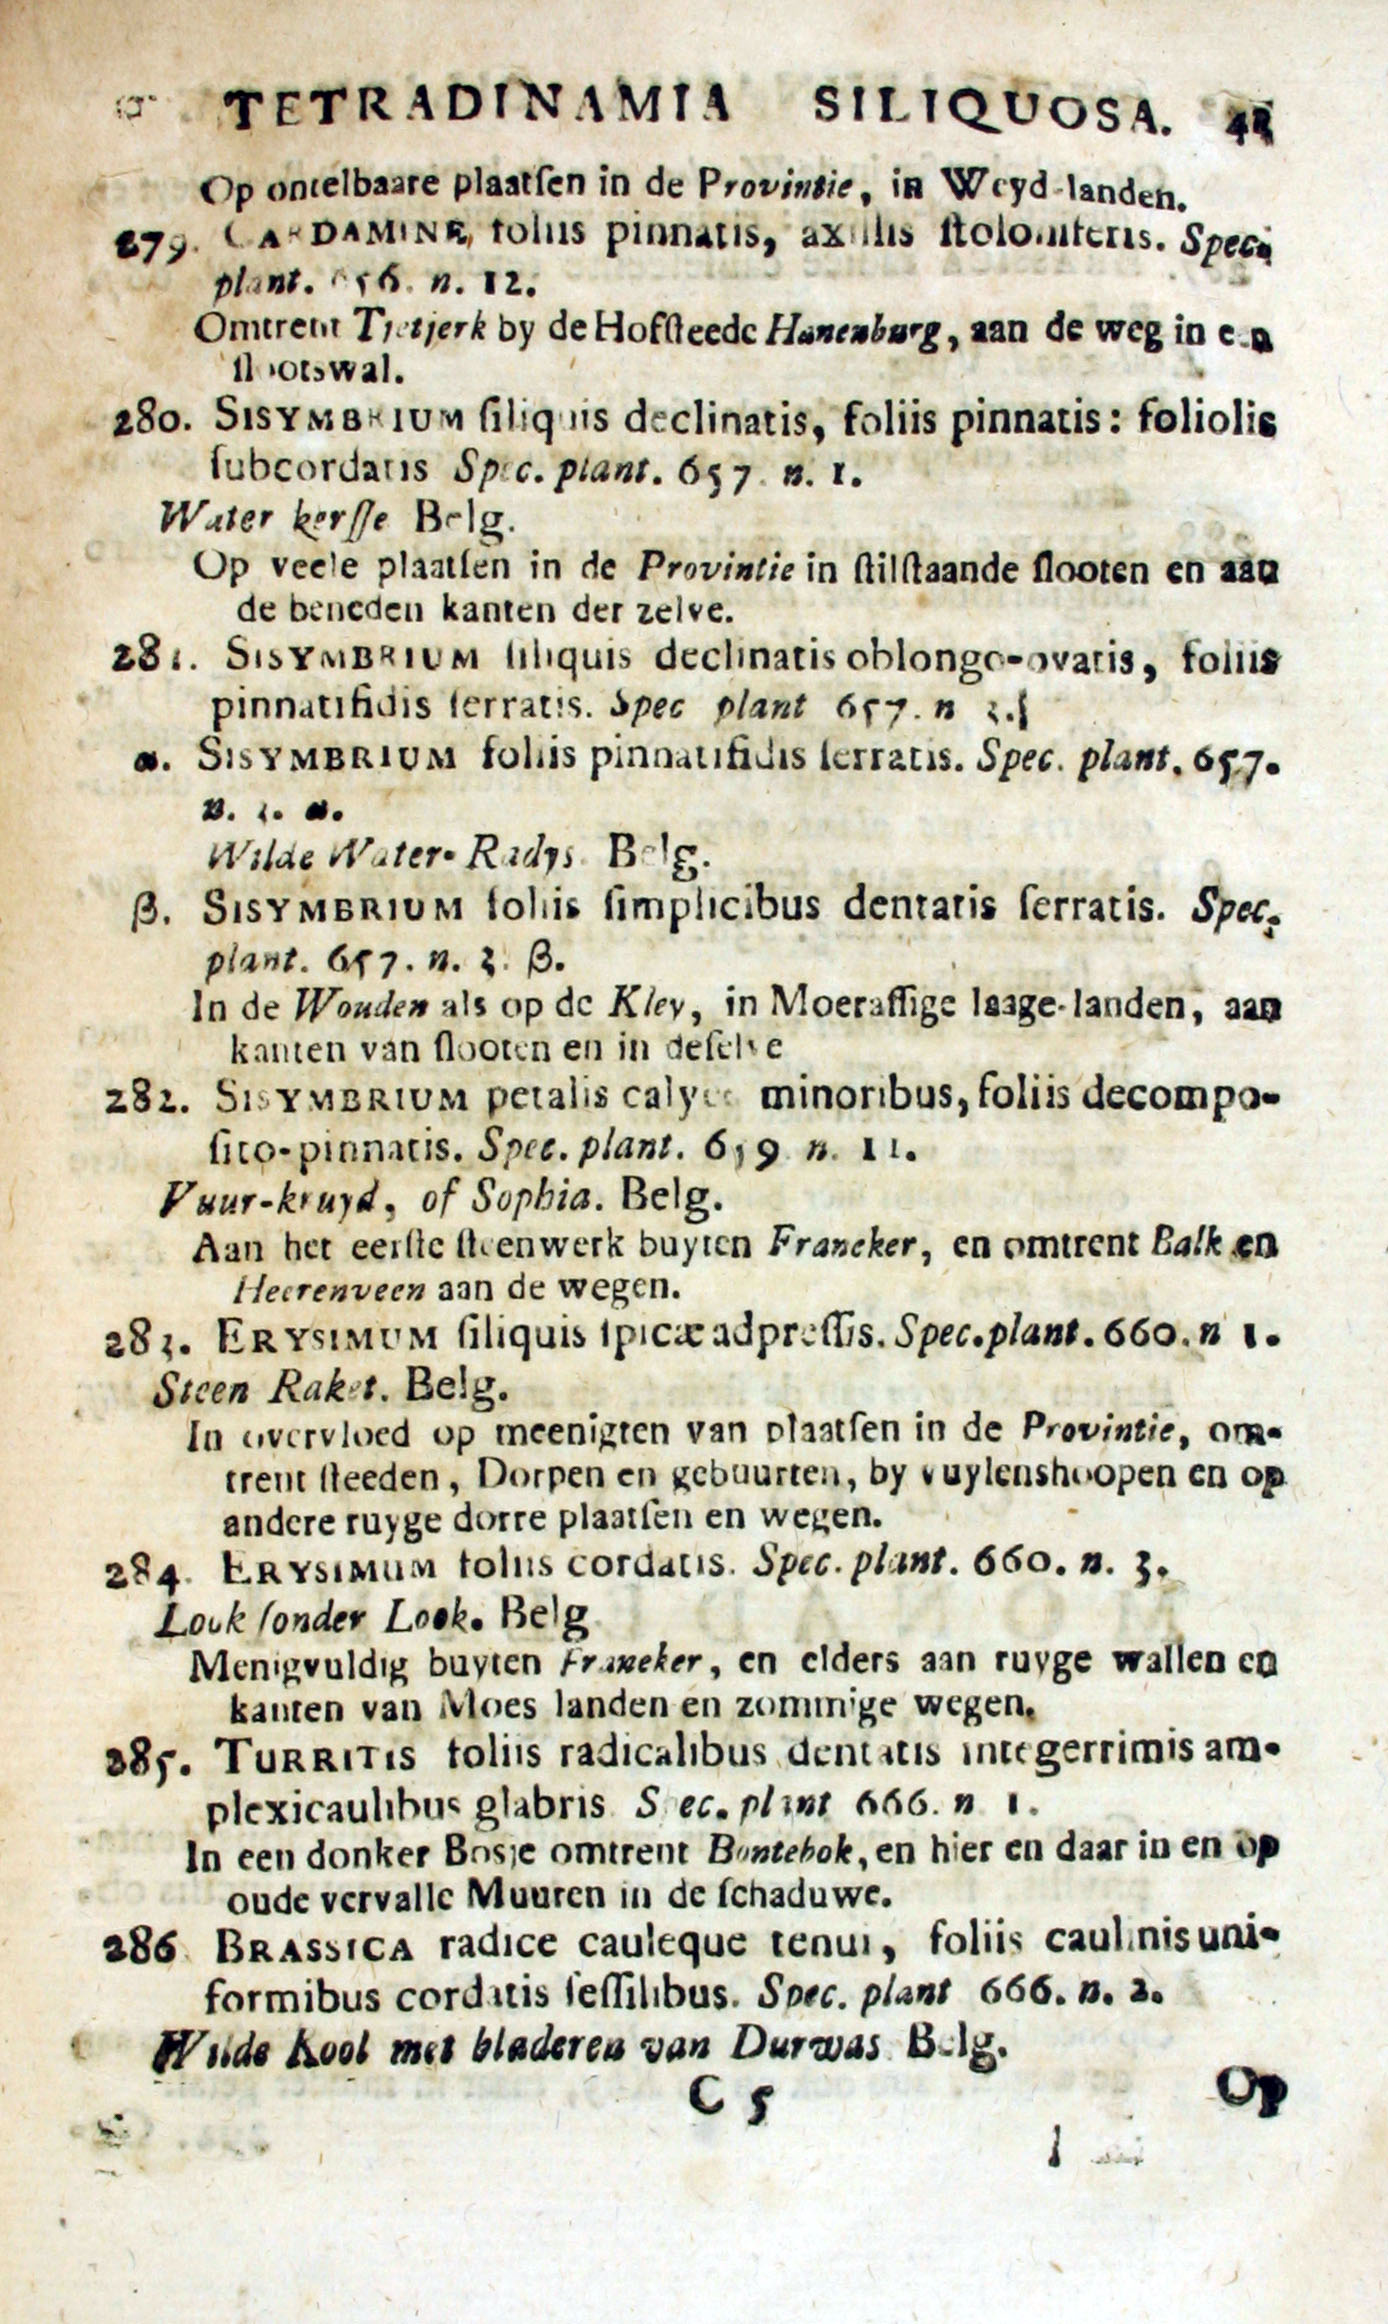 TETRADINAMIA SILIQUOSA. 41
Op ontelbaare plaatſen in de Provintie, in Weyd-landen.
279. CARDAMINE, foliis pinnatis, axillis ſtoloniferis. Spec.
plant. 656. n. 12.
Omtrent Tietjerk by de Hofſteede Hanenburg, aan de weg in een
ſlootswal.
280. SISYMBRIUM ſiliquis declinatis, foliis pinnatis: foliolis
ſubcordatis Spec. plant. 657. n. 1.
Water kerſſe Belg.
Op veele plaatſen in de Provintie in ſtilſtaande ſlooten en aan
de beneden kanten der zelve.
281. SISYMBRIUM ſiliquis declinatis oblongo-ovatis, foliis
pinnatifidis ſerratis. Spec plant 657. n 3.
α. SISYMBRIUM foliis pinnatifidis ſerratis. Spec. plant. 657.
n. 3. α.
Wilde Water-Radys. Belg.
β. SISYMBRIUM foliis ſimplicibus dentatis ſerratis. Spec.
plant. 657. n. 3. β.
In de Wouden als op de Kley, in Moeraſſige laage-landen, aan
kanten van ſlooten en in deſelve
282. SISYMBRIUM petalis calyce minoribus, foliis decompo-
ſito-pinnatis. Spec. plant. 659 n. 11.
Vuur-kruyd, of Sophia. Belg.
Aan het eerſte ſteenwerk buyten Franeker, en omtrent Balk en
Heerenveen aan de wegen.
283. ERYSIMUM ſiliquis ſpicæ adpreſſis. Spec. plant. 660. n 1.
Steen Raket. Belg.
In overvloed op meenigten van plaatſen in de Provintie, om-
trent ſteeden, Dorpen en gebuurten, by vuylenshoopen en op
andere ruyge dorre plaatſen en wegen.
284. ERYSIMUM foliis cordatis. Spec. plant. 660. n. 3.
Look ſonder Look. Belg
Menigvuldig buyten Franeker, en elders aan ruyge wallen en
kanten van Moes landen en zommige wegen.
285. TURRITIS foliis radicalibus dentatis integerrimis am-
plexicaulibus glabris Spec. plant 666. n 1.
In een donker Bosje omtrent Bontebok, en hier en daar in en op
oude vervalle Muuren in de ſchaduwe.
286 BRASSICA radice cauleque tenui, foliis caulinis uni-
formibus cordatis ſeſſilibus. Spec. plant 666. n. 2.
Wilde Kool met bladeren van Durwas Belg.
C 5 Op